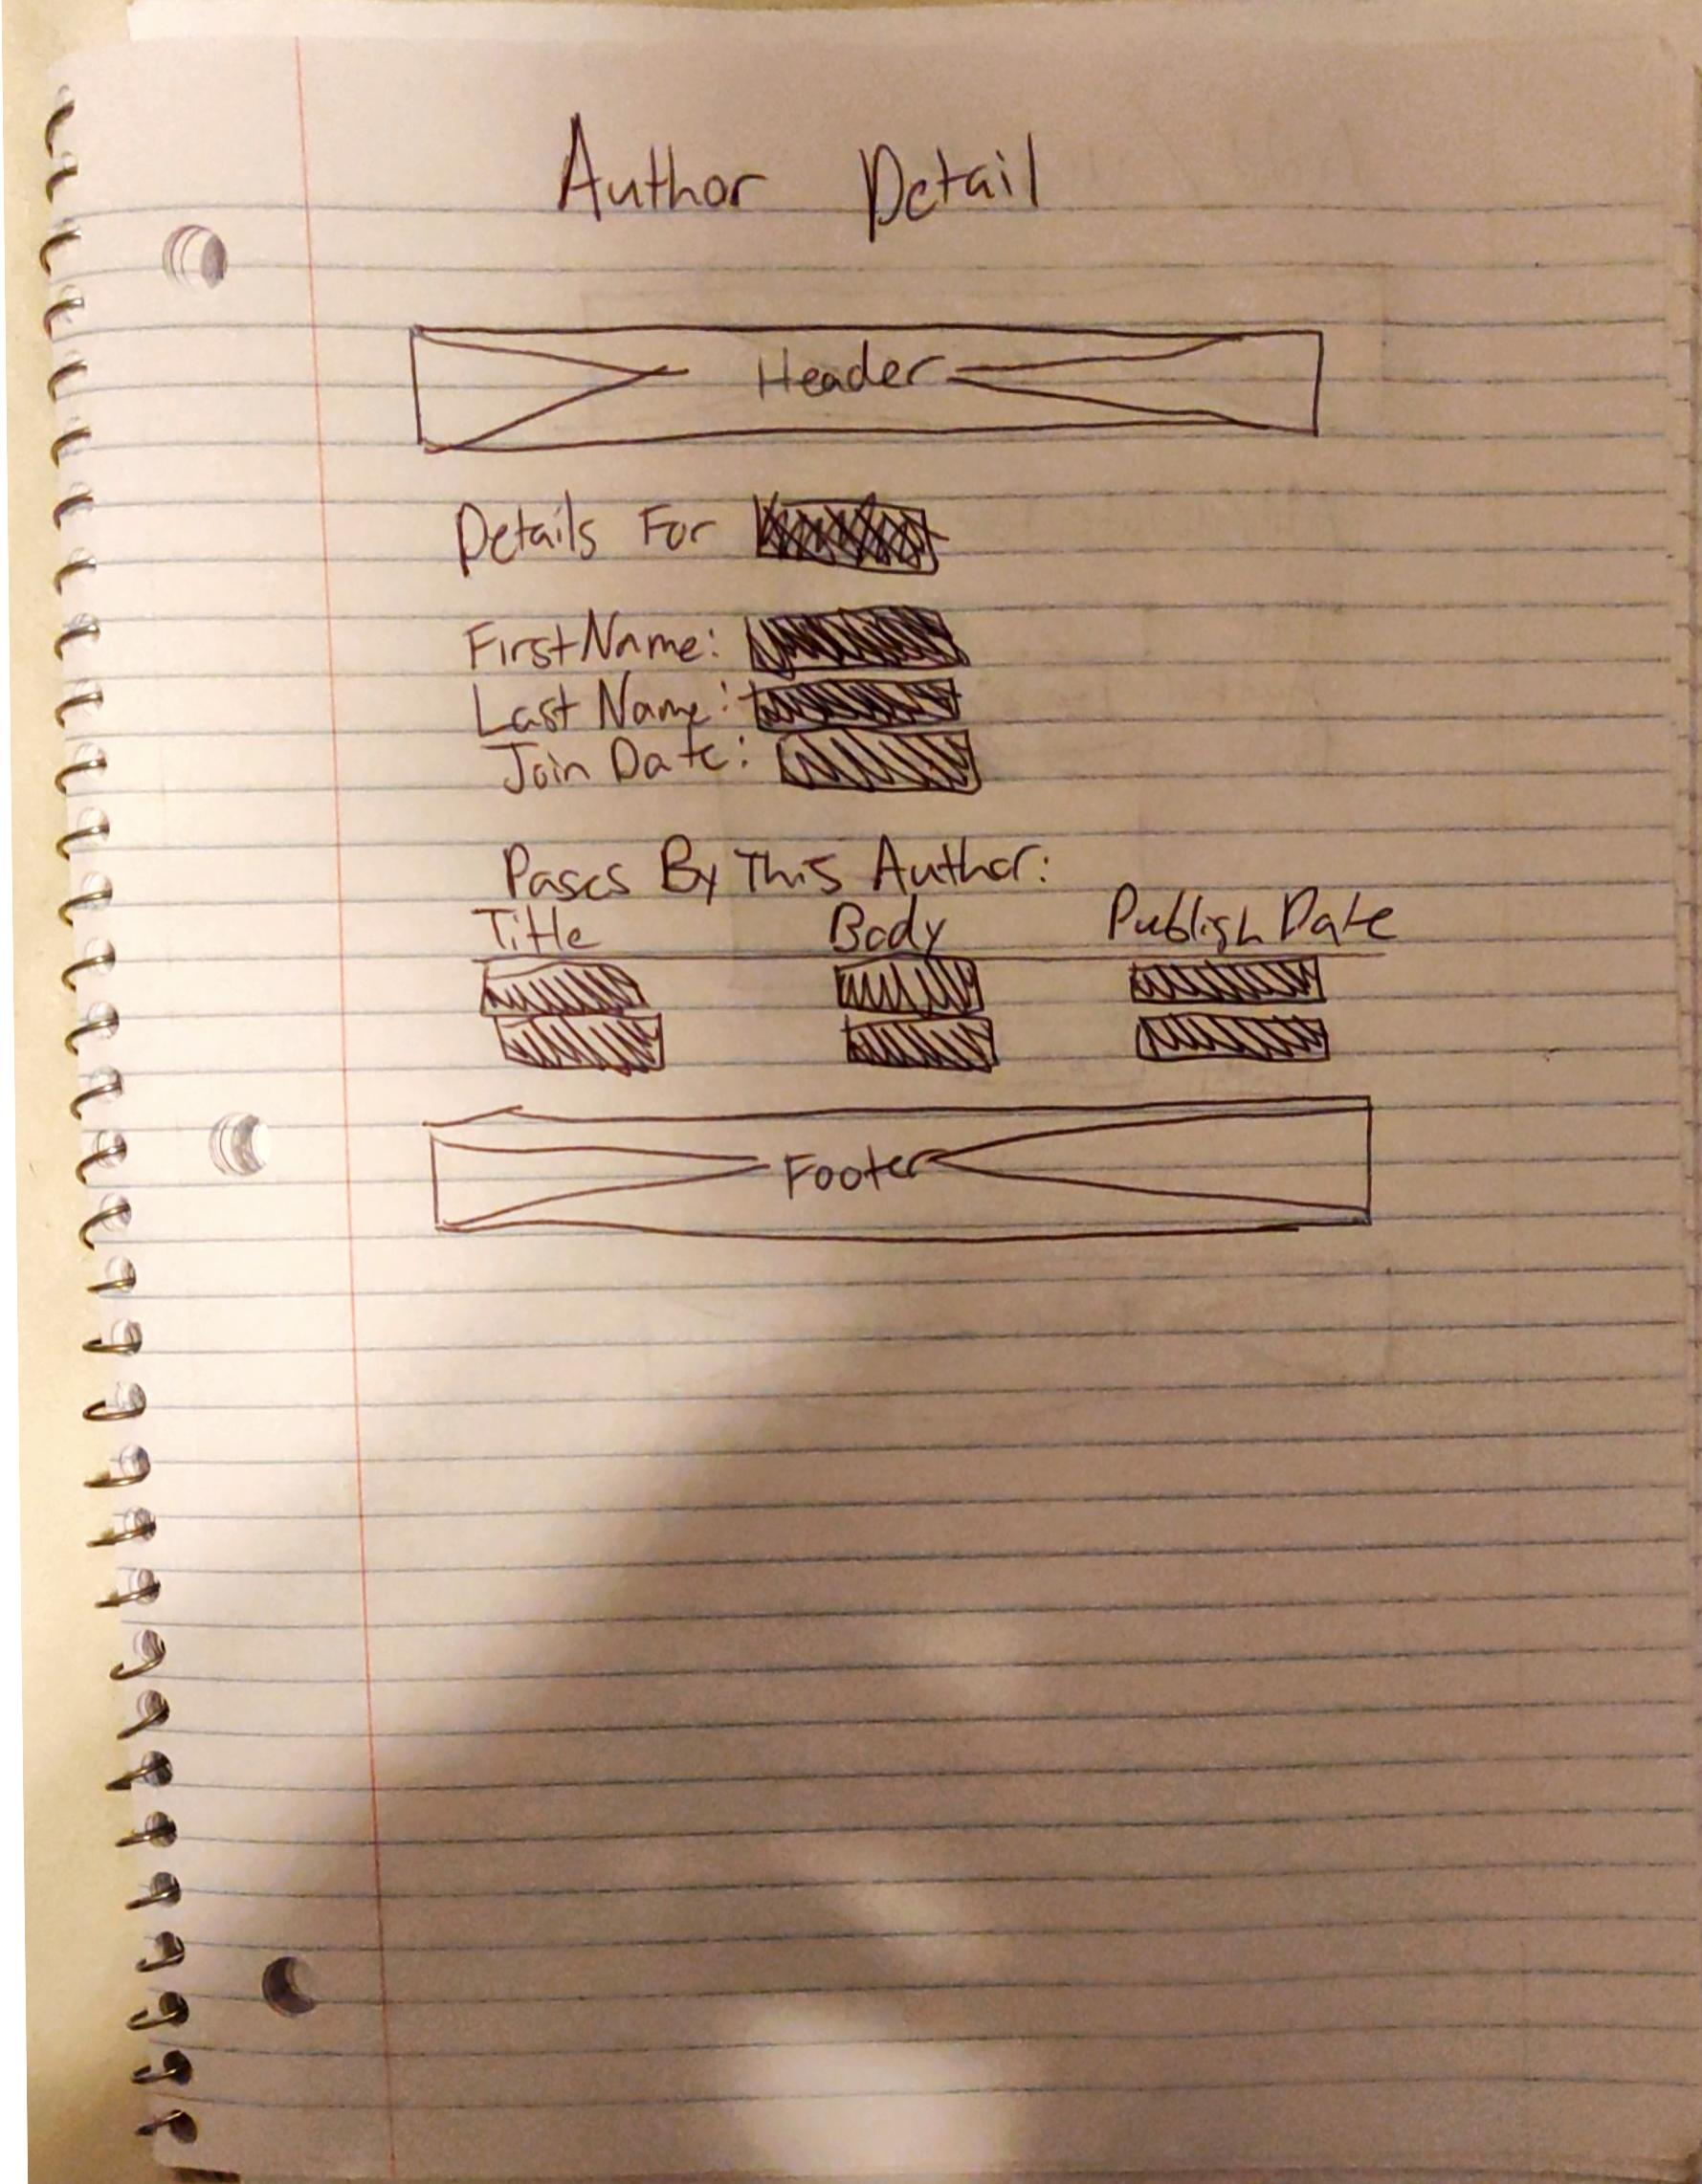 Author Detail
Header
Details For
First Name:
Last Name:
Join Date:
Pages By This Author:
Title Body Publish Date
Footer